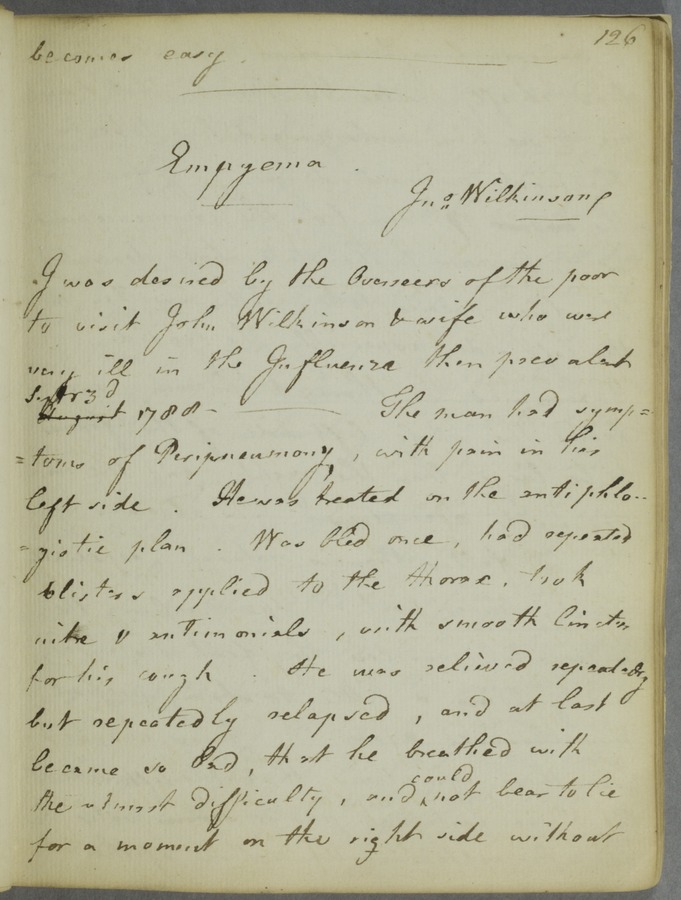 126
becomes easy.
Empyema.
Jno. Wilkinson
I was desired by the Overseers of the poor
to visit John Wilkinson & wife who were
very ill in the Influenza then prevalent
Septr 3d
August 1788 - The man had symp=
=toms of Peripneumony, with pain in his
left side. He was treated on the antiphlo-
=gistic plan. Was bled once, had repeated
blisters applied to the thorax, took
nitre & antimonials, with smooth linctus
for his cough. He was relieved repeatedly
but repeatedly relapsed, and at last
became so bad, that he breathed with
could
the utmost difficulty, and not bear to lie
for a moment on the right side without